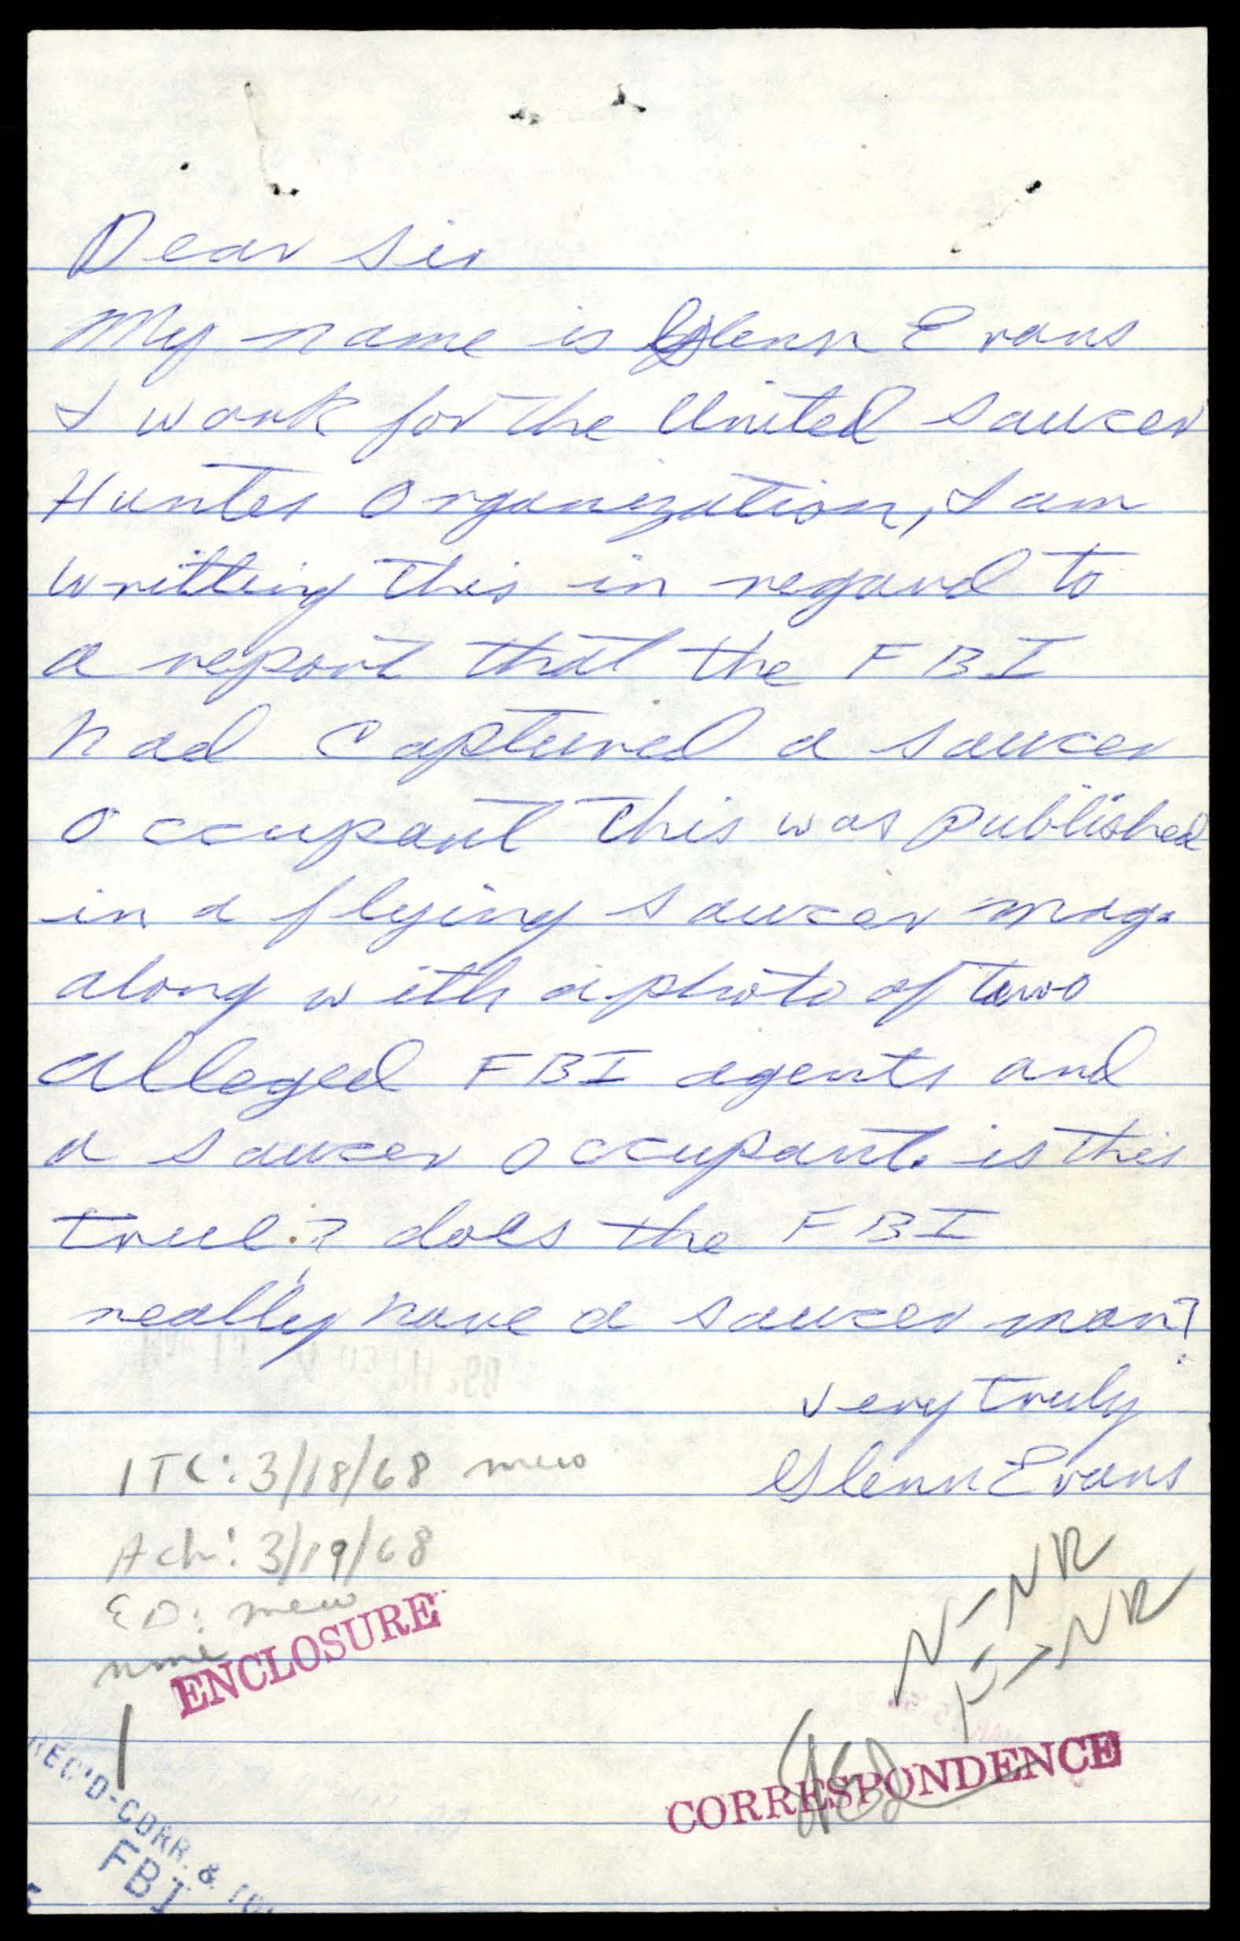 Dear Sir
My name is Glenn Evans
I work for the United Saucer
Hunter Organization, I am
writting this in regard to
a report that the FBI
had captured a saucer
occupant this was published
in a flying saucer mag.
along with a photo of two
alleged FBI agents and
a saucer occupant. is this
true.? does the FBI
really have a saucer man?
very truly
Glenn Evans
ITC: 3/18/68 mew
Ack: 3/19/68
ED: mew
N-NR
NR
ENCLOSURE
CORRESPONDENCE
REC'D-CORR. &
FBI